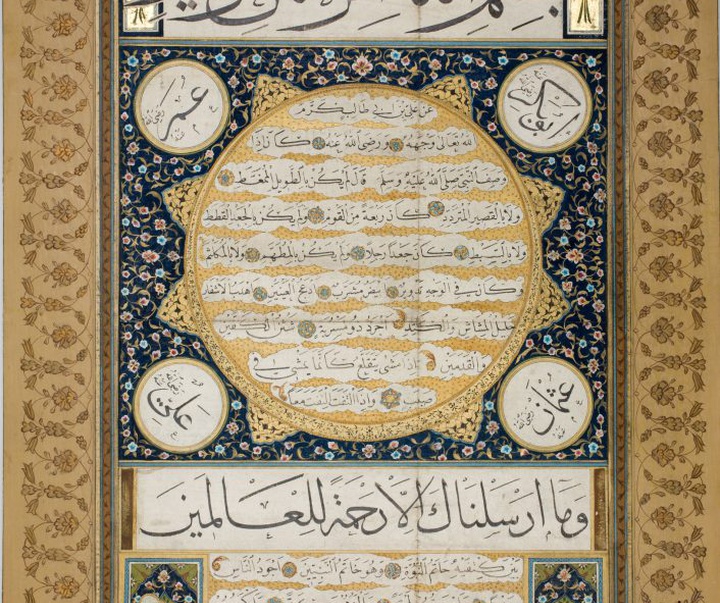 ابوبكر رضي الله عنه
عمر رضي الله عنه
عن علي بن ابي طالب كرم
الله تعالى وجهه ورضي الله عنه كان اذا
وصف النبي صلى الله عليه وسلم قال لم يكن بالطويل الممغط
ولا بالقصير المتردد كان ربعة من القوم ولم يكن بالجعد القطط
ولا بالسبط كان جعدا رجلا ولم يكن بالمطهم ولا بالمكلثم
وكان في الوجه تدوير ابيض مشرب ادعج العينين اهدب الاشفار
جليل المشاش والكتد اجرد ذو مسربة شثن الكفين
والقدمين اذا مشى يتقلع كانما يمشي في
صبب واذا التفت التفت معا
عثمان رضي الله عنه
علي رضي الله عنه
وَمَا اَرْسَلْنَاكَ اِلَّا رَحْمَةً لِلْعَالَمِينَ
بين كتفيه خاتم النبوة وهو خاتم النبيين اجود الناس